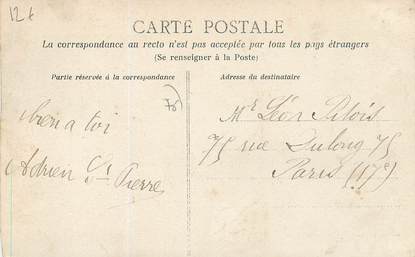 12 €
CARTE POSTALE
La correspondance au recto n'est pas acceptée par tous les pays étrangers
(Se renseigner à la Poste)
Partie réservée à la correspondance
Adresse du destinataire
75)
bien a toi
Adrien St Pierre
Mr Léon
75 rue Dulong 75
Paris (17e)